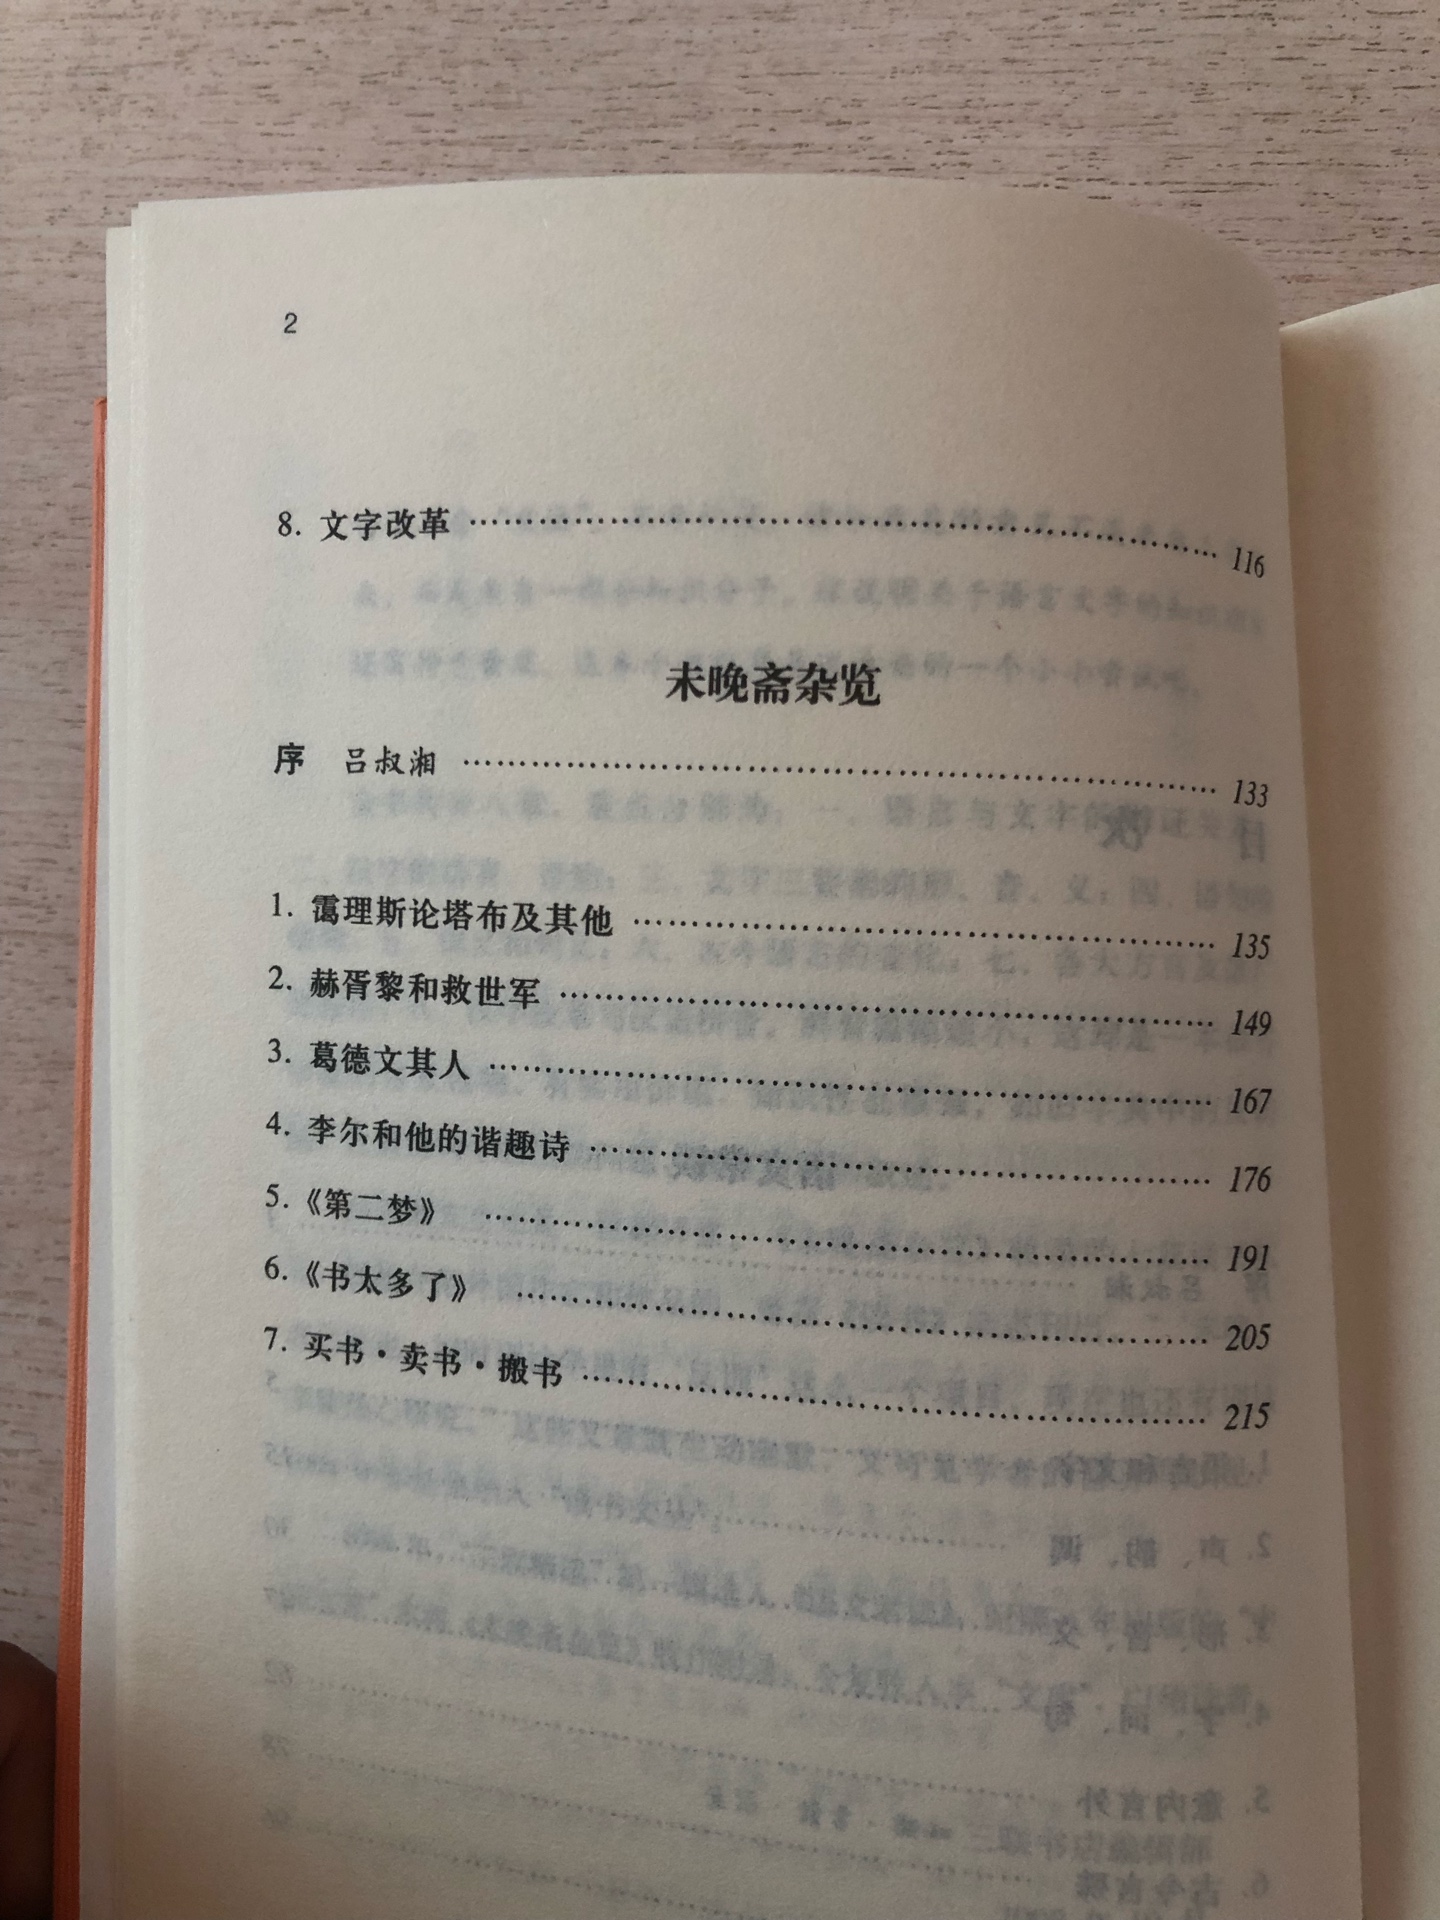 2
8. 文字改革 …… 116
未晚斋杂览
序 吕叔湘 …… 133
1. 霭理斯论塔布及其他 …… 135
2. 赫胥黎和救世军 …… 149
3. 葛德文其人 …… 167
4. 李尔和他的谐趣诗 …… 176
5.《第二梦》 …… 191
6.《书太多了》 …… 205
7. 买书·卖书·搬书 …… 215